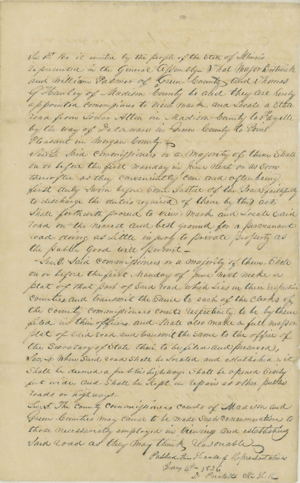 Sec 1st Be it enacted by the people of the State of Illinois
represented in the General Assembly That Major
and William Palmer of Green County and Thomas
of Madison County be and they are hereby
appointed commissioners to view mark and locate a State
road from Lower Alton in Madison County to
by the way of Delaware in Green County to
Pleasant in Morgan County
Said commissioners or a majority of them shall
on or before the first monday in June next or as soon
thereafter as they conveniently can and after being
first duly Sworn before some Justice of the Peace faithfully
to discharge the duties required of them by this act
Shall forthwith proceed to view mark and locate said
road on the nearest and best ground for a permanent
road doing as little injury to private property as
the public good will permit
Sec 3. Said commissioners or a majority of them Shall
on or before the first Monday of June next make a
plat of that part of said road which lies in their respective
counties and transmit the same to each of the clerks of
the county commissioners courts respectively to be by them
filed in their offices and Shall also make a full
plat of said road and transmit the same to the office of
the Secretary of State there to be filed and preserved,
Sec 4 When Said road Shall be located and established it
Shall be deemed a public highway Shall be opened
feet wide and Shall be kept in repair as other public
roads or highways
Sec 5 The County commissioners courts of Madison and
Green Counties may cause to be made such compensation to
those necessarily employed in viewing and establishing
Said road as they may think reasonable
Passed the House of Representatives
Jany 1836
D Prickett Clk H R